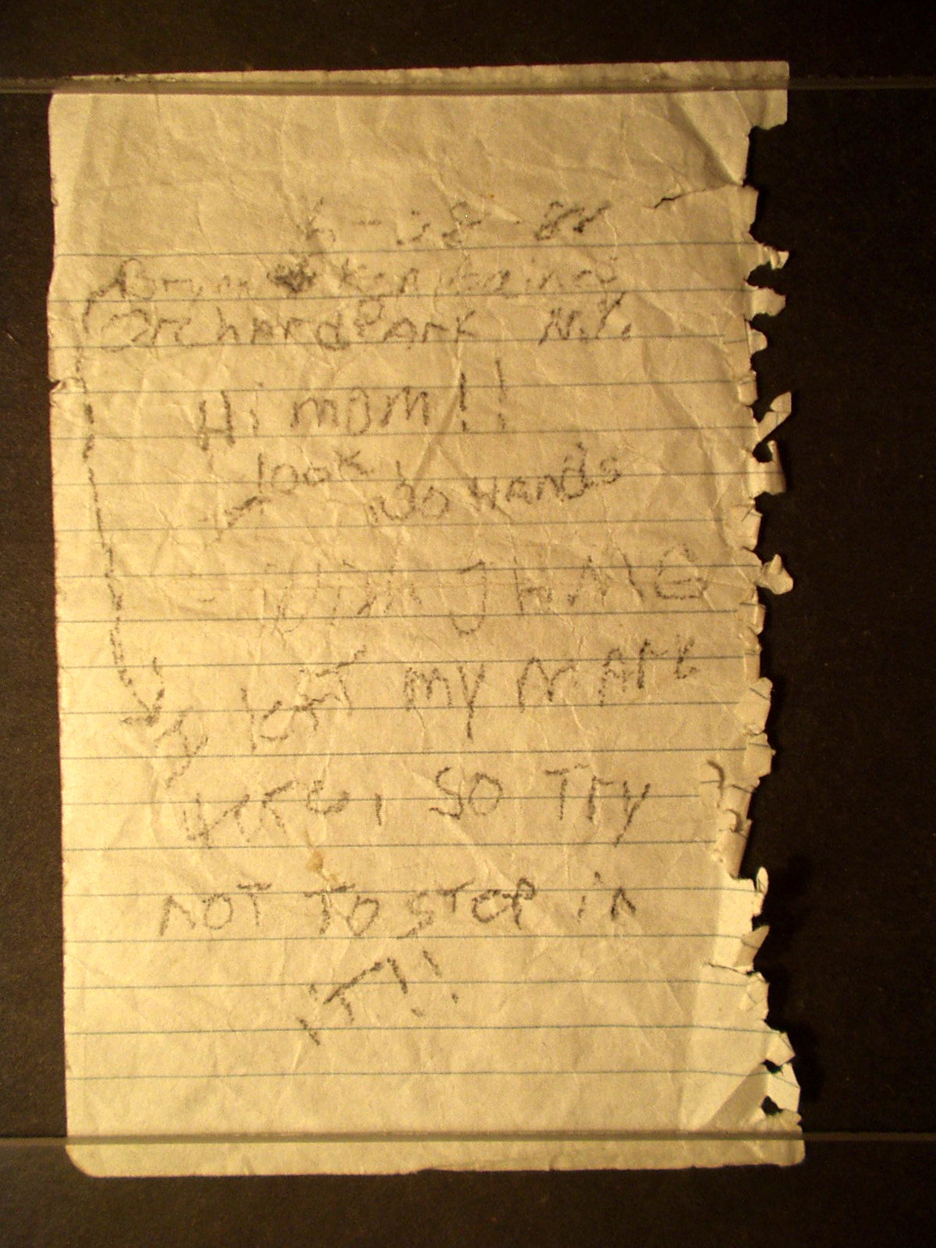 6-28-88
Orchard Park N.Y.
Hi mom!!
look, no Hands
I left my mark
Here, so Try
NOT TO STEP in
iT!!